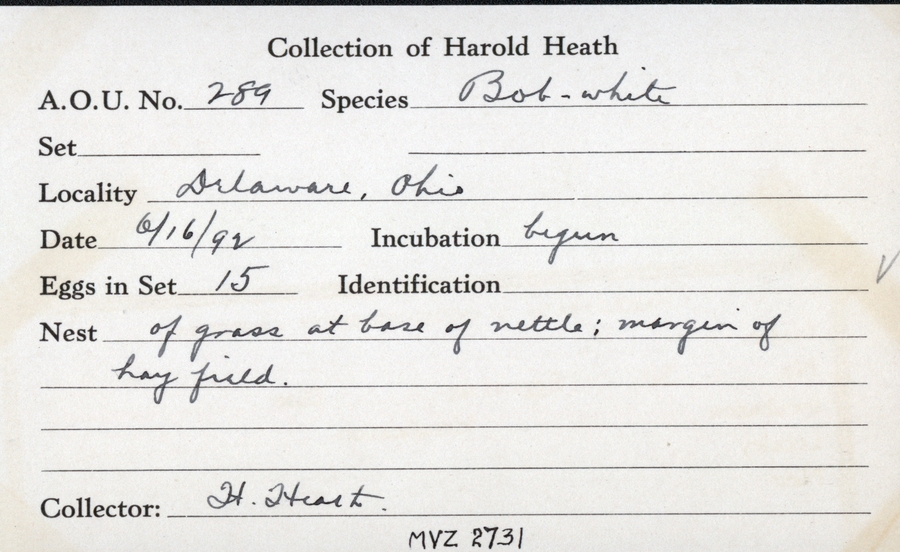 Collection of Harold Heath
A.O.U. No. 289 Species Bob-white
Set
Locality Delaware, Ohio
Date 6/16/92 Incubation begun
Eggs in Set 15 Identification
Nest of grass at base of nettle; margin of
hay field.
Collector: H. Heath.
MVZ 2731